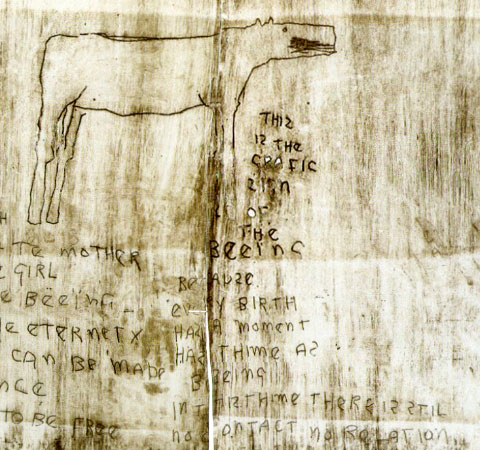 THIS
IS THE
SIGN
OF
THE
BEEING
MOTHER
GIRL
BEEING
ETERNETX
CAN BE MADE
TO BE FREE
BECAUSE
EVERY BIRTH
HAS A MOMENT
HAS THIME AS
BEEING
THERE IS STIL
NO CONTACT NO RELATION.